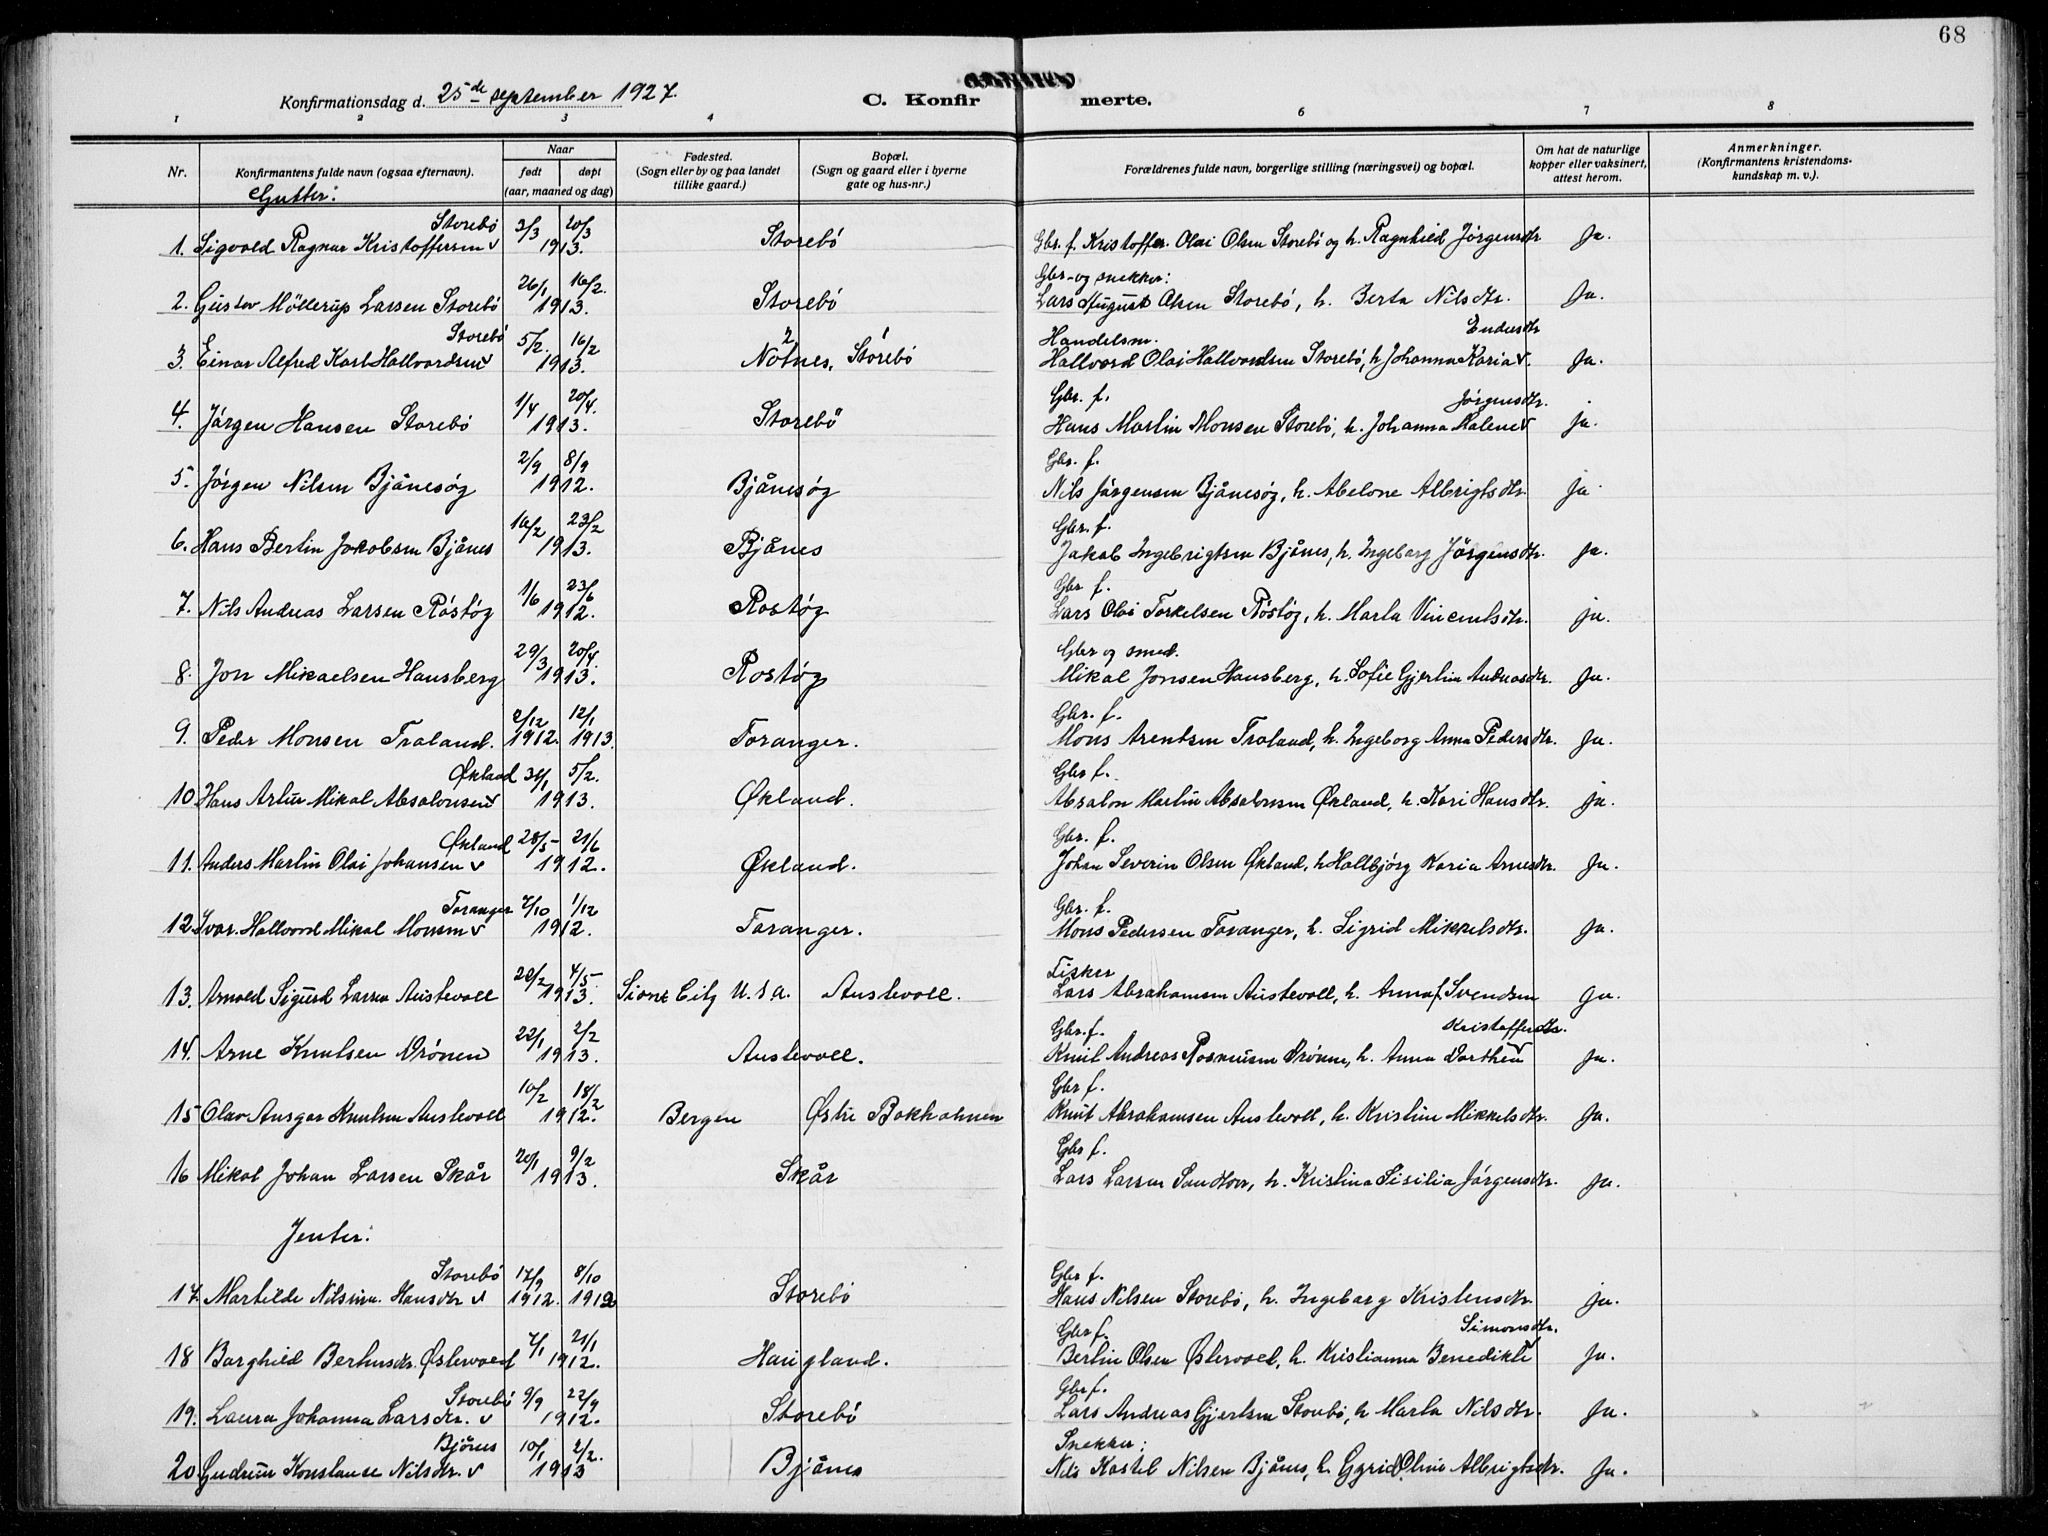 68
Konfirmationsdag d. 25de september 1927.
C. Konfir merte.
1 2 3 4 6 7 8
Nr. Konfirmantens fulde navn (ogsaa efternavn). Naar født døpt (aar, maaned og dag) Fødested. (Sogn eller by og paa landet tillike gaard.) Bopæl. (Sogn og gaard eller i byerne gate og hus-nr.) Forældrenes fulde navn, borgerlige stilling (næringsvei) og bopæl. Om hat de naturlige kopper eller vaksinert, attest herom. Anmerkninger. (Konfirmantens kristendoms-kundskap m. v.).
Gutter:
Storebö 3/3 20/3
1. Sigvald Ragnar Kristoffersen v 1913. Storebö Gbr. f. Kristoffer Olai Olsen Storebö og h. Ragnhild Jörgensdtr. Ja.
26/1 16/2. Gbr- og snekker:
2. Gustav Möllerup Larsen Storebö 1913. Storebö Lars August Olsen Storebö, h. Berta Nilsdtr. Ja.
Storebö 5/2. 16/2 Handelsm. Endresdtr
3. Einar Alfred Karl Hallvardsen v 1913. Notnes, Storebö Hallvard Olai Hallvardsen Storebö, h. Johanna Karia v. Ja.
1/4 20/4. Gbr. f. Jörgensdtr.
4. Jörgen Hansen Storebö 1913. Storebö Hans Martin Monsen Storebö, h. Johanna Malene v ja.
2/9 8/9 Gbr. f.
5. Jörgen Nilsen Bjånesøy 1912. Bjånesøy Nils Jörgensen Bjånesøy, h. Abelone Albrigtsdtr. ja.
16/2 23/2 Gbr. f.
6. Hans Bertin Jakobsen Bjånes 1913. Bjånes Jakob Ingebrigtsen Bjånes, h. Ingeborg Jörgensdtr. ja.
1/6 23/6 Gbr f.
7. Nils Andreas Larsen Röstöy 1912. Rostöy Lars Olai Torkelsen Röstöy, h. Marta Vincentsdtr. ja.
29/3 20/4. Gbr og smed.
8. Jon Mikaelsen Hansberg 1913. Rostöy Mikal Jonsen Hansberg, h. Sofie Gjertin Andreasdtr. Ja.
2/12 12/1 Gbr. f.
9. Peder Monsen Troland. 1912. 1913. Toranger. Mons Arentsen Troland, h. Ingeborg Anna Pedersdtr. Ja.
Økland 31/1 5/2. Gbr f.
10. Hans Artur Mikal Absalonsen v 1913. Økland. Absalon Martin Absalonsen Økland, h. Kari Hansdtr. ja.
Økland 28/5 21/6 Gbr. f.
11. Anders Martin Olai Johansen v 1912. Økland. Johan Severin Olsen Økland, h. Hallbjörg Karia Arnesdtr. Ja.
Toranger 7/10 1/12 Gbr. f.
12. Ivar Hallvard Mikal Monsen v 1912. Toranger. Mons Pedersen Toranger, h. Sigrid Mikkelsdtr. Ja.
4/5 Fisker
13. Arnold Sigurd Larsen Austevoll 1913. City U.S.A. Austevoll. Lars Abrahamsen Austevoll, h. Anna f. Svendsen Ja.
22/1 2/2 Gbr. f. Kristoffersdtr.
14. Arne Knutsen Drönen 1913. Austevoll. Knut Andreas Rasmussen Drönen, h. Anna Dorthea v Ja.
10/2 18/2 Gbr f.
15 Olav Ansgar Knutsen Austevoll 1912. Bergen Østre Bakholmen Knut Abrahamsen Austevoll, h. Kristine Mikkelsdtr. Ja.
20/1 9/2 Gbr f.
16 Mikal Johan Larsen Skår 1913. Skår Lars Larsen h. Kristina Sisilia Jörgensdtr. Ja.
Jenter:
Storebö 17/9 8/10 Gbr f.
17. Martilde Nilsina Hansdtr v 1912. 1912 Storebö Hans Nilsen Storebö, h. Ingeborg Kristensdtr. ja.
7/1 21/1 Gbr f. Simonsdtr.
18 Borghild Østervoll 1912. Haugland. Bertin Olsen Østervoll, h. Kristianna Benedikte v Ja.
Storebö 9/9 22/9 Gbr f.
19. Laura Johanna Larsdtr. v 1912. Storebö Lars Andreas Gjertsen Storebö, h. Marta Nilsdtr. Ja.
Bjånes 10/1 2/2. Snekker:
20. Gudrun Konstanse Nilsdtr. v 1913 Bjånes Nils Kastel Nilsen Bjånes, h. Gyrid Oline Albrigtsdtr. Ja.